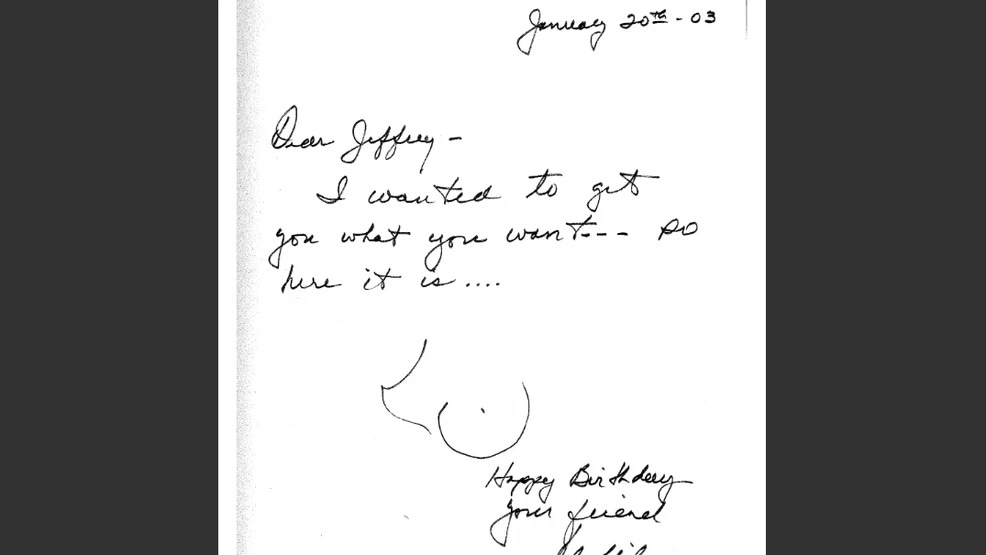 January 20th - 03
Dear Jeffrey -
I wanted to get
you what you want--- so
here it is ....
Happy Birthday
your friend